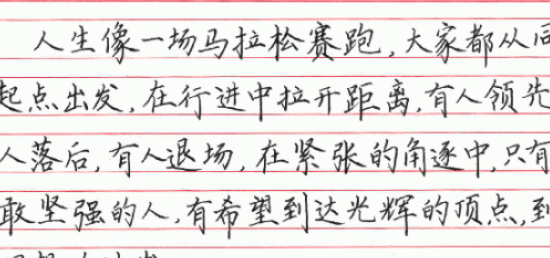 人生像一场马拉松赛跑,大家都从同
起点出发,在行进中拉开距离,有人领先
人落后,有人退场,在紧张的角逐中,只有
敢坚强的人,有希望到达光辉的顶点,到